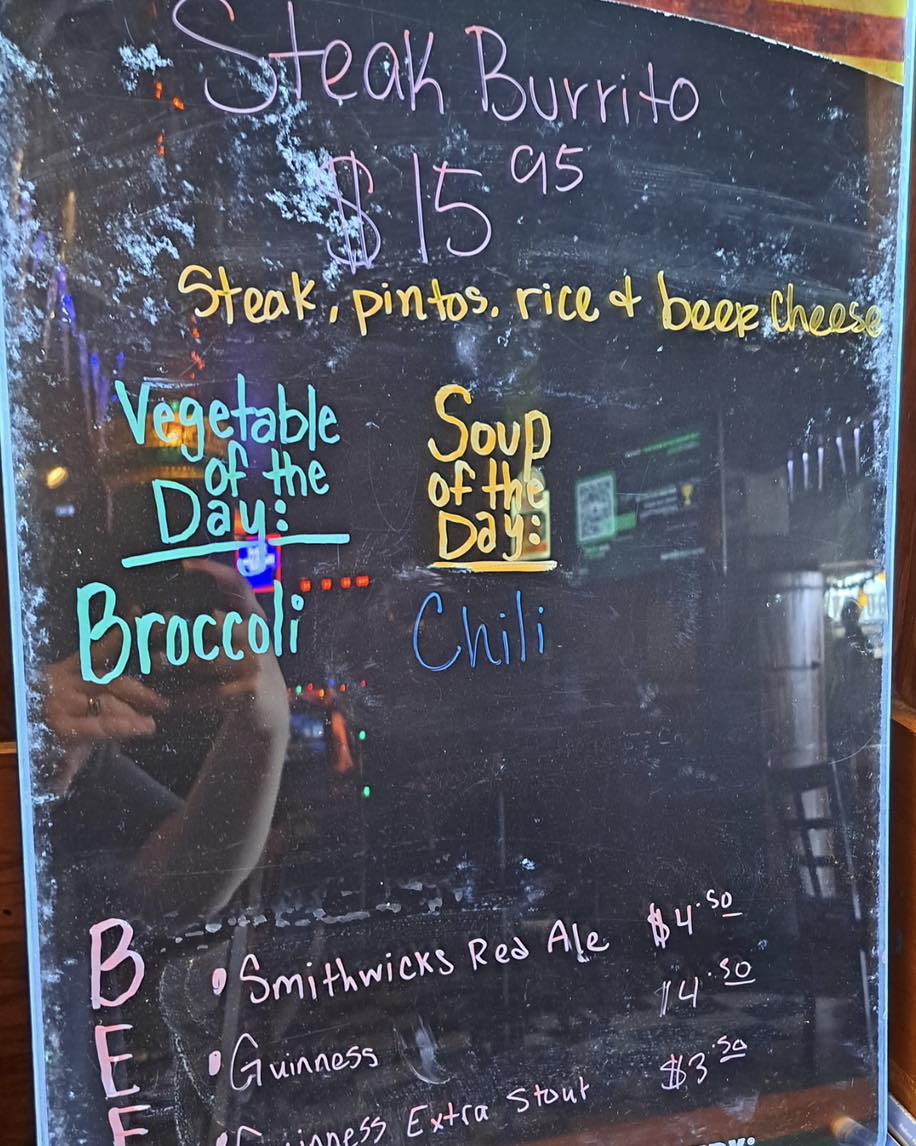 Steak Burrito
$15 95
Steak, pintos, rice & beer cheese
Vegetable
of the
Day:
Broccoli
Soup
of the
Day:
Chili
B
E
E
• Smithwicks Red Ale $4.50
• Guinness $4.50
• Guinness Extra Stout $3.50